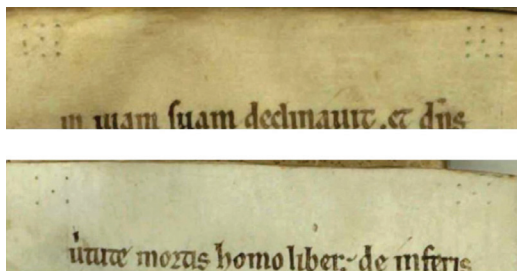 in uiam suam declinauit. et dn̄s
uͥtute mortis homo liber de inferis